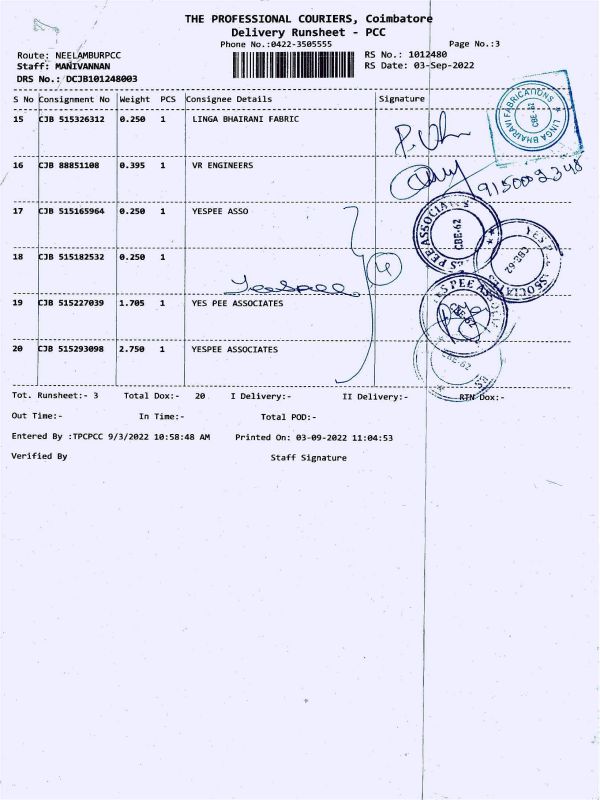 THE PROFESSIONAL COURIERS, Coimbatore
Delivery Runsheet - PCC
Phone No.:0422-3505555
Page No.:3
Route: NEELAMBURPCC
RS No.: 1012480
Staff: MANIVANNAN
RS Date: 03-Sep-2022
DRS No.: DCJB101248003
S No Consignment No Weight PCS Consignee Details Signature
15 CJB 515326312 0.250 1 LINGA BHAIRANI FABRIC
LINGA BHAIRAVI FABRICATIONS
CBE-62
16 CJB 88851108 0.395 1 VR ENGINEERS
9150002348
17 CJB 515165964 0.250 1 YESPEE ASSO
YES PEE ASSOCIATES
CBE-62
YES PEE ASSOCIATES
CBE-62
18 CJB 515182532 0.250 1
Yespee
4
19 CJB 515227039 1.705 1 YES PEE ASSOCIATES
YES PEE ASSOCIATES
20 CJB 515293098 2.750 1 YESPEE ASSOCIATES
CBE-62
Tot. Runsheet:- 3 Total Dox:- 20 I Delivery:- II Delivery:- RTN Dox:-
Out Time:- In Time:- Total POD:-
Entered By :TPCPCC 9/3/2022 10:58:48 AM Printed On: 03-09-2022 11:04:53
Verified By Staff Signature